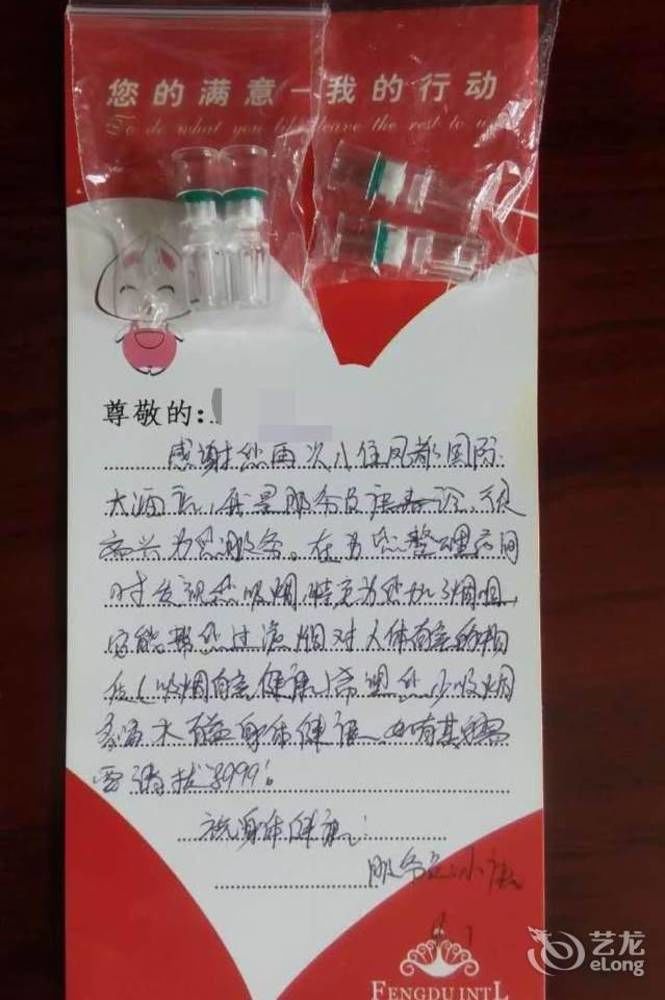 您的满意—我的行动
To do what you like leave the rest to us
尊敬的:
感谢您再次入住凤都国际
大酒店,我是服务员唐春玲、很
高兴为您服务。在为您整理房间
时发现您吸烟,特意为您加了烟咀,
它能帮您过滤烟对人体有害的物
质(吸烟有害健康)希望您少吸烟
多喝水 有益身体健康、如有其它需
要请拨8999!
祝:身体健康!
服务员:小唐
FENGDU INT'L
艺龙
eLong